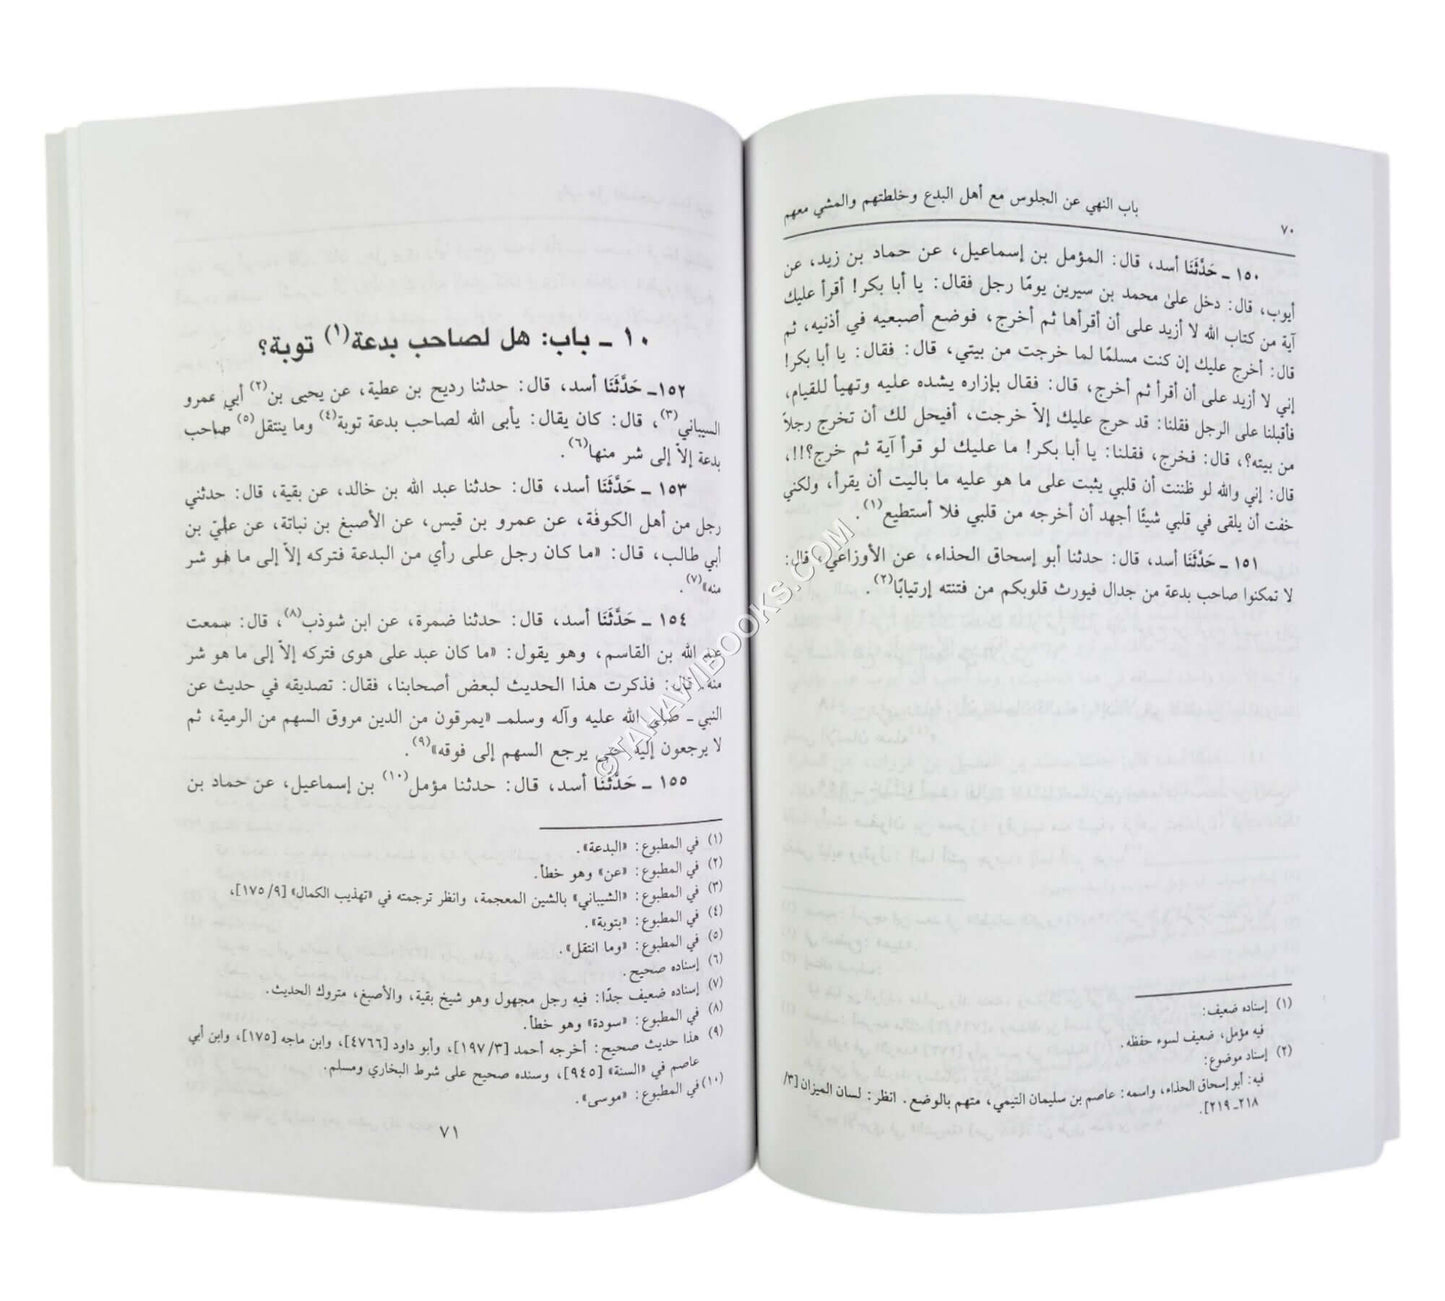 ٧٠
باب النهي عن الجلوس مع أهل البدع وخلطتهم والمشي معهم
١٥٠ ـ حَدَّثَنَا أسد، قال: المؤمل بن إسماعيل، عن حماد بن زيد، عن
أيوب، قال: دخل على محمد بن سيرين يومًا رجل فقال: يا أبا بكر! أقرأ عليك
آية من كتاب الله لا أزيد على أن أقرأها ثم أخرج، فوضع أصبعيه في أذنيه، ثم
قال: أخرج عليك إن كنت مسلمًا لما خرجت من بيتي، قال: فقال: يا أبا بكر!
إني لا أزيد على أن أقرأ ثم أخرج، قال: فقال بإزاره يشده عليه وتهيأ للقيام،
فأقبلنا على الرجل فقلنا: قد حرج عليك إلاّ خرجت، أفيحل لك أن تخرج رجلاً
من بيته؟، قال: فخرج، فقلنا: يا أبا بكر! ما عليك لو قرأ آية ثم خرج؟!!،
قال: إني والله لو ظننت أن قلبي يثبت على ما هو عليه ما باليت أن يقرأ، ولكني
خفت أن يلقى في قلبي شيئًا أجهد أن أخرجه من قلبي فلا أستطيع(١).
١٥١ ـ حَدَّثَنَا أسد، قال: حدثنا أبو إسحاق الحذاء، عن الأوزاعي، قال:
لا تمكنوا صاحب بدعة من جدال فيورث قلوبكم من فتنته إرتيابًا(٢).
(١) إسناده ضعيف:
فيه مؤمل، ضعيف لسوء حفظه.
(٢) إسناد موضوع:
فيه: أبو إسحاق الحذاء، واسمه: عاصم بن سليمان التيمي، متهم بالوضع. انظر: لسان الميزان [٣/
٢١٨ـ ٢١٩].
١٠ ـ باب: هل لصاحب بدعة(١) توبة؟
١٥٢ـ حَدَّثَنَا أسد، قال: حدثنا رديح بن عطية، عن يحيى بن(٢) أبي عمرو
السيباني(٣)، قال: كان يقال: يأبى الله لصاحب بدعة توبة(٤) وما ينتقل(٥) صاحب
بدعة إلاّ إلى شر منها(٦).
١٥٣ ـ حَدَّثَنَا أسد، قال: حدثنا عبد الله بن خالد، عن بقية، قال: حدثني
رجل من أهل الكوفة، عن عمرو بن قيس، عن الأصبغ بن نباتة، عن عليّ بن
أبي طالب، قال: «ما كان رجل على رأي من البدعة فتركه إلاّ إلى ما هو شر
منه»(٧).
١٥٤ ـ حَدَّثَنَا أسد، قال: حدثنا ضمرة، عن ابن شوذب(٨)، قال: سمعت
عبد الله بن القاسم، وهو يقول: «ما كان عبد على هوى فتركه إلاّ إلى ما هو شر
منه، قال: فذكرت هذا الحديث لبعض أصحابنا، فقال: تصديقه في حديث عن
النبي ـ صلى الله عليه وآله وسلم ـ «يمرقون من الدين مروق السهم من الرمية، ثم
لا يرجعون إليه حتى يرجع السهم إلى فوقه»(٩).
١٥٥ ـ حَدَّثَنَا أسد، قال: حدثنا مؤمل(١٠) بن إسماعيل، عن حماد بن
(١) في المطبوع: «البدعة».
(٢) في المطبوع: «عن» وهو خطأ.
(٣) في المطبوع: «الشيباني» بالشين المعجمة، وانظر ترجمته في «تهذيب الكمال» [١٧٥/٩]،
(٤) في المطبوع: «بتوبة».
(٥) في المطبوع: «وما انتقل».
(٦) إسناده صحيح.
(٧) إسناده ضعيف جدًا: فيه رجل مجهول وهو شيخ بقية، والأصبغ، متروك الحديث.
(٨) في المطبوع: «سودة» وهو خطأ.
(٩) هذا حديث صحيح: أخرجه أحمد [١٩٧/٣]، وأبو داود [٤٧٦٦]، وابن ماجه [١٧٥]، وابن أبي
عاصم في «السنة» [٩٤٥]، وسنده صحيح على شرط البخاري ومسلم.
(١٠) في المطبوع: «موسى».
٧١
©TAHAVIBOOKS.COM